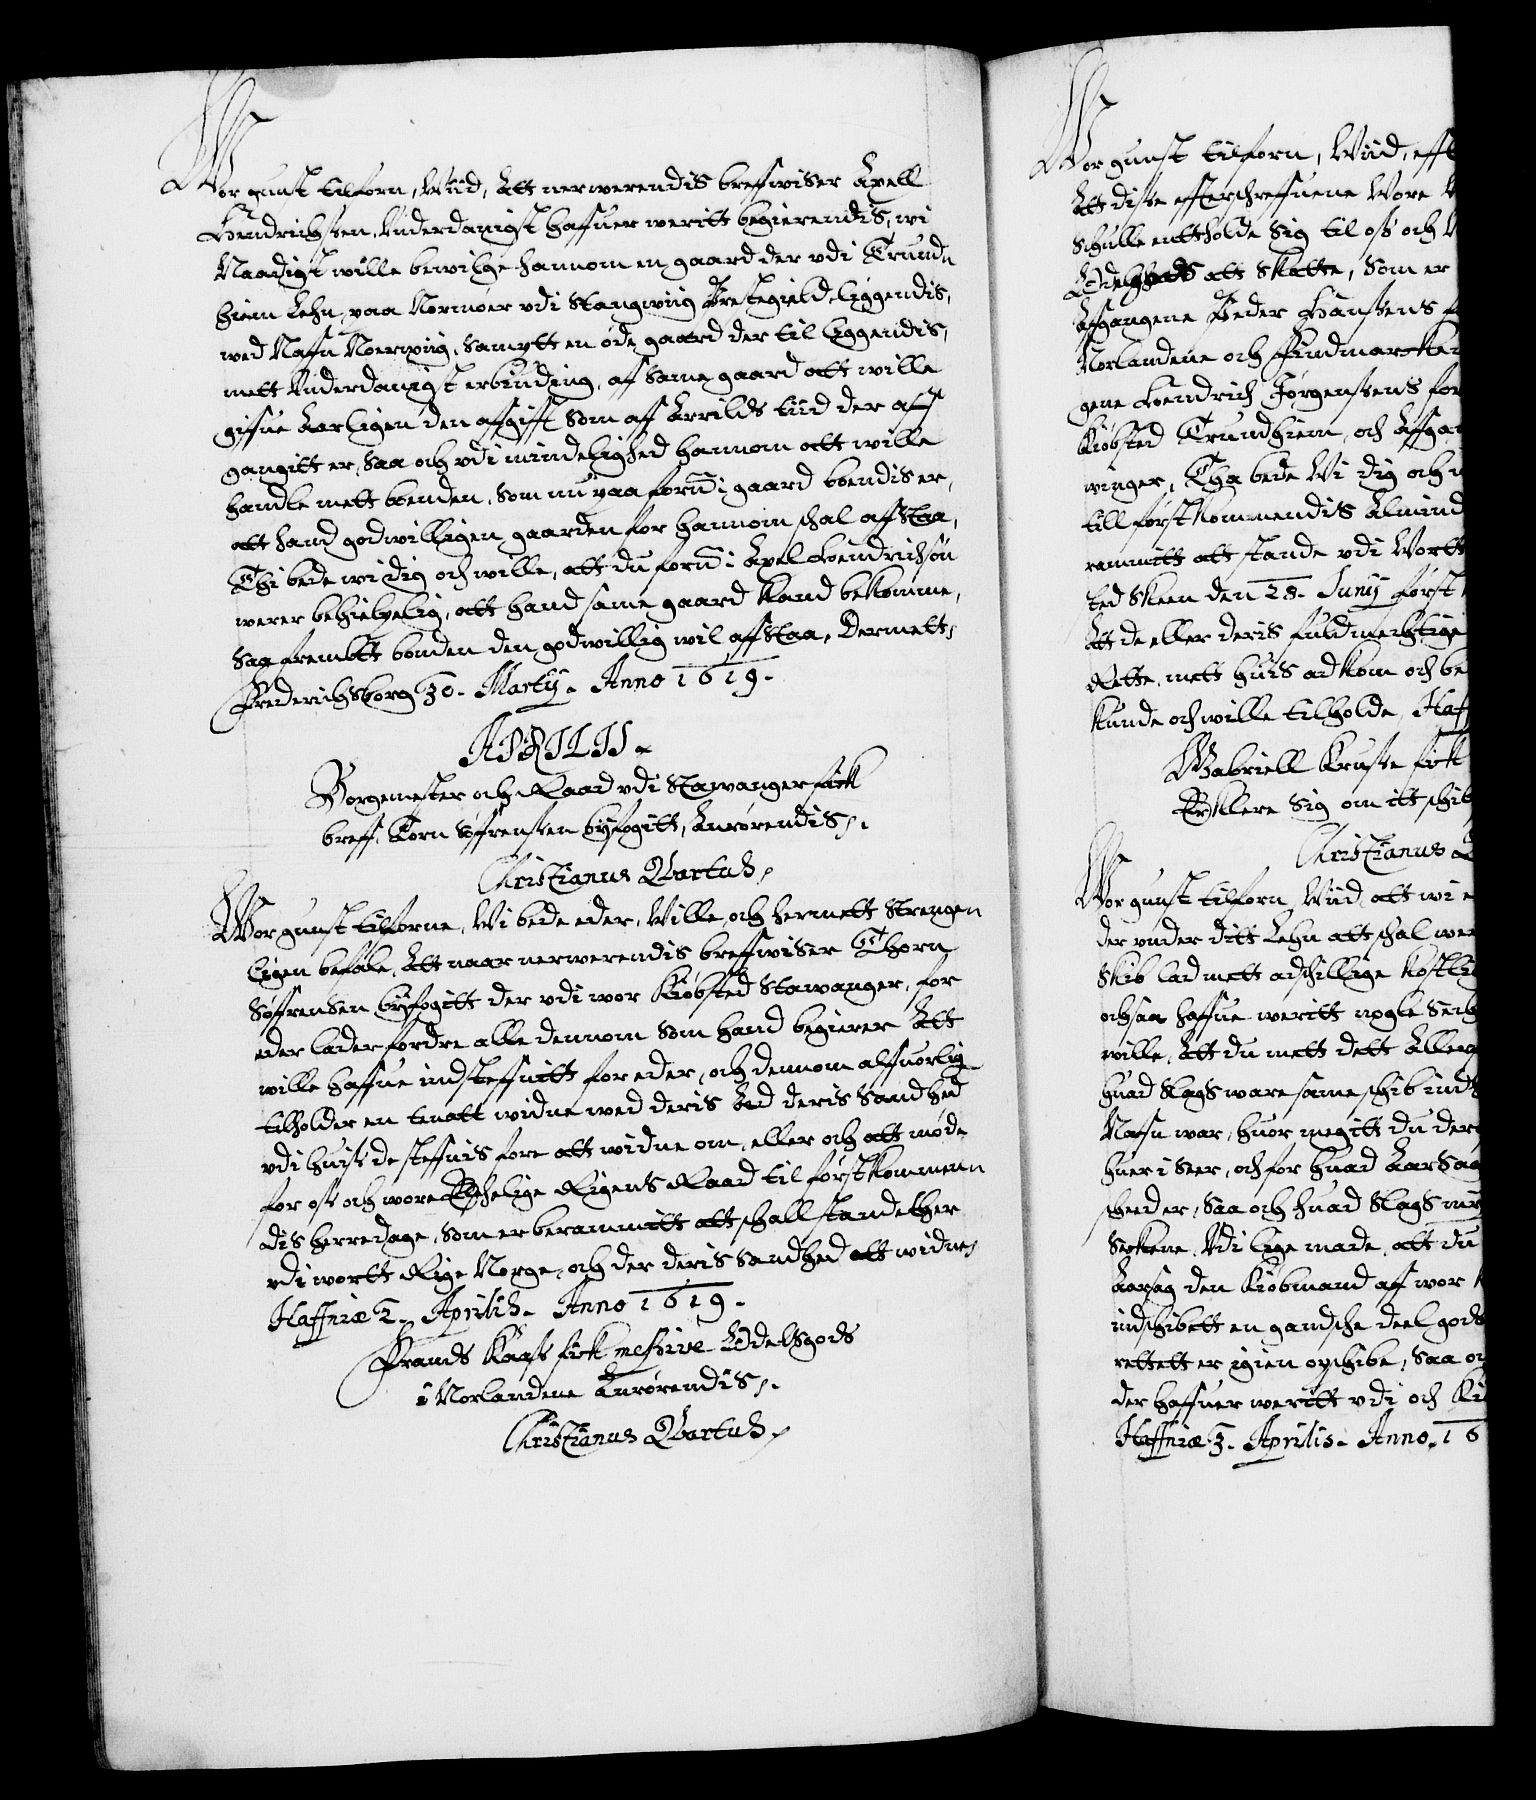 Wor gunst tilforn, Wiid, Att nerwerendis breffwiser Axell
Hendrichsten, Vnderdanigst haffuer weritt begierendis, wi
Naadigst wille bewilge hannom en gaard der vdi Trund-
hiem Lehn, paa Normoer vdi Stangwiig Prestegield liggendis,
wed Nafn Norwiig, sampt en øde gaard der til liggendis,
mett Vnderdanigst erbiuding, aff same gaard att wille
giffue Aarligen den affgifft som aff Arrilds tiid der aff
gangitt er, Saa och vdi mindelighed hannom att wille
handle mett bonden, som nu paa fornē: gaard boendis er,
att hand godwilligen gaarden for hannom schal affstaa,
Thi bede wi dig och wille, att du fornē: Axel Hendrichsøn
werer behielpelig, att hand same gaard kand bekomme,
saa frembtt bonden den godwillig wil affstaa, Dermett,
Frederichsborg 30. Martij. Anno 1619.
APRILIS.
Borgemester och Raad vdi Stawanger fick
breff, Torn Søffrensten byfogitt, Anrørendis.
Christianus Qvartus,
Wor gunst tilforne, Wi bede eder, Wille, och hermett strengen
ligen befale, Att naar nerwerendis breffwiser Thorn
Søffrensen byfogitt der vdi wor Kiøbsted Stawanger, for
eder lader fordre alle dennom som hand begierer Att
wille haffue indsteffnitt for eder, och dennom alfuorlig
tilholder en tenatt widne wed deris Eed deris Sandhed
vdi huis de steffnis fore att widne om, eller och att møde
for oss och wore Elschelige Rigens Raad til førstkommenn
dis herredage, som er berammitt att schall stande ther
vdi wortt Rige Norge, och der deris sandhed att widne,
Haffniæ 2. Aprilis. Anno 1619.
Frands Kaas fick missive Odelsgods
i Norlandene Anrørendis.
Christianus Qvartus,
Wor gunst tilforn, Wiid, efft
Att disse efftterschreffuene Wore
schulle enttholde sig til oss och
Odelgods att skatte, Som er
Affgangene Peder Hanstens
Norlandene och Findmarcken
gene Hendrich Jørgenstens for
Kiøbsted Trundhiem, och Affgan
winger, Tha bede Wi dig och
tillførstkommendis Almind
rammitt att stande vdi Wortt
sted Skeen den 28. Junij først
Att de eller deris fuldmechtige
Rette, mett huis adkom och be
kunde och wille tilholde, Haf
Gabriell Kruse fick
Erklere sig om itt schib
Christianus
Wor gunst tilforn, Wiid att wi
der vnder ditt Lehn att schal wer
skib lad mett adschillige kostlig
ochsaa haffue weritt nogle
wille, Att du mett dett Aller
huad slags ware same schib ind
Nafn war, huor megitt du der
huer i seer, och for huad Aarsag
scheed er, Saa och huad slags
Vdi lige made, att du
Aarsag den Kiøbmand aff wor
indschibett en gandsche deel gods
rettett er igien opschibe, Saa och
der haffuer weritt vdi och
Haffniæ 3. Aprilis. Anno. 16